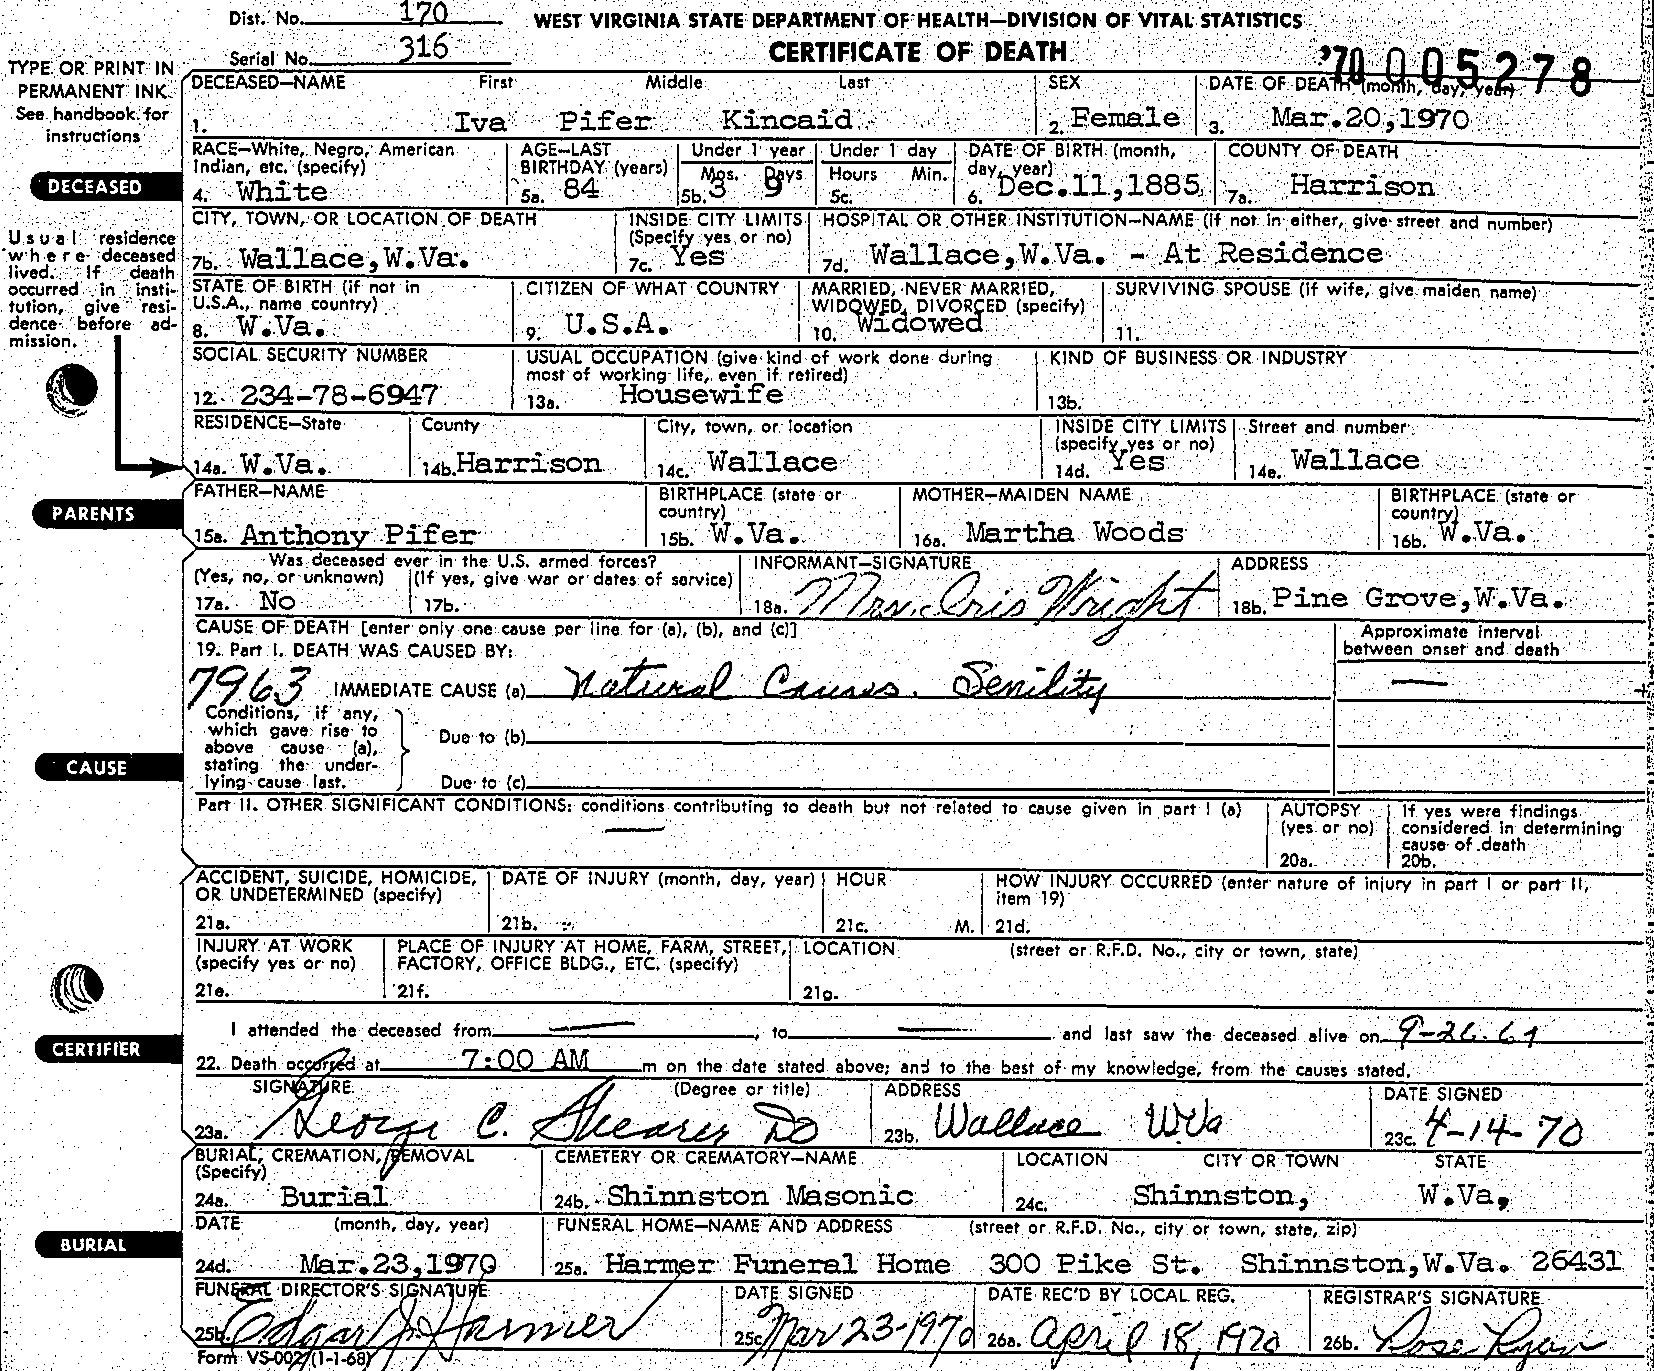 Dist. No. 170
WEST VIRGINIA STATE DEPARTMENT OF HEALTH—DIVISION OF VITAL STATISTICS
Serial No. 316
CERTIFICATE OF DEATH
'70 005278
TYPE OR PRINT IN
PERMANENT INK
See handbook for
instructions
DECEASED—NAME First Middle Last SEX DATE OF DEATH (month, day, year)
1. Iva Pifer Kincaid 2. Female 3. Mar.20,1970
DECEASED
RACE—White, Negro, American
Indian, etc. (specify)
4. White
AGE—LAST
BIRTHDAY (years)
5a. 84
Under 1 year
Mos. Days
5b. 3 9
Under 1 day
Hours Min.
5c.
DATE OF BIRTH (month,
day, year)
6. Dec.11,1885
COUNTY OF DEATH
7a. Harrison
Usual residence
where deceased
lived. If death
occurred in insti-
tution, give resi-
dence before ad-
mission.
CITY, TOWN, OR LOCATION OF DEATH
7b. Wallace,W.Va.
INSIDE CITY LIMITS
(Specify yes or no)
7c. Yes
HOSPITAL OR OTHER INSTITUTION—NAME (if not in either, give street and number)
7d. Wallace,W.Va. - At Residence
STATE OF BIRTH (if not in
U.S.A., name country)
8. W.Va.
CITIZEN OF WHAT COUNTRY
9. U.S.A.
MARRIED, NEVER MARRIED,
WIDOWED, DIVORCED (specify)
10. Widowed
SURVIVING SPOUSE (if wife, give maiden name)
11.
SOCIAL SECURITY NUMBER
12. 234-78-6947
USUAL OCCUPATION (give kind of work done during
most of working life, even if retired)
13a. Housewife
KIND OF BUSINESS OR INDUSTRY
13b.
RESIDENCE—State
14a. W.Va.
County
14b. Harrison
City, town, or location
14c. Wallace
INSIDE CITY LIMITS
(specify yes or no)
14d. Yes
Street and number
14e. Wallace
PARENTS
FATHER—NAME
15a. Anthony Pifer
BIRTHPLACE (state or
country)
15b. W.Va.
MOTHER—MAIDEN NAME
16a. Martha Woods
BIRTHPLACE (state or
country)
16b. W.Va.
Was deceased ever in the U.S. armed forces?
(Yes, no, or unknown) (If yes, give war or dates of service)
17a. No 17b.
INFORMANT—SIGNATURE
18a. Mrs. Oris Wright
ADDRESS
18b. Pine Grove,W.Va.
CAUSE
CAUSE OF DEATH [enter only one cause per line for (a), (b), and (c)]
19. Part I. DEATH WAS CAUSED BY:
Approximate interval
between onset and death
7963 IMMEDIATE CAUSE (a) Natural Causes. Senility —
Conditions, if any,
which gave rise to
above cause (a),
stating the under-
lying cause last.
Due to (b)
Due to (c)
Part II. OTHER SIGNIFICANT CONDITIONS: conditions contributing to death but not related to cause given in part I (a)
—
AUTOPSY
(yes or no)
20a.
If yes were findings
considered in determining
cause of death
20b.
ACCIDENT, SUICIDE, HOMICIDE,
OR UNDETERMINED (specify)
21a.
DATE OF INJURY (month, day, year)
21b.
HOUR
21c. M.
HOW INJURY OCCURRED (enter nature of injury in part I or part II,
item 19)
21d.
INJURY AT WORK
(specify yes or no)
21e.
PLACE OF INJURY AT HOME, FARM, STREET,
FACTORY, OFFICE BLDG., ETC. (specify)
21f.
LOCATION (street or R.F.D. No., city or town, state)
21g.
CERTIFIER
I attended the deceased from — , to — and last saw the deceased alive on 9-26-69
22. Death occurred at 7:00 AM m on the date stated above; and to the best of my knowledge, from the causes stated.
SIGNATURE (Degree or title)
23a. George C. Shearer DO
ADDRESS
23b. Wallace WVa
DATE SIGNED
23c. 4-14-70
BURIAL
BURIAL, CREMATION, REMOVAL
(Specify)
24a. Burial
CEMETERY OR CREMATORY—NAME
24b. Shinnston Masonic
LOCATION CITY OR TOWN STATE
24c. Shinnston, W.Va,
DATE (month, day, year)
24d. Mar.23,1970
FUNERAL HOME—NAME AND ADDRESS (street or R.F.D. No., city or town, state, zip)
25a. Harmer Funeral Home 300 Pike St. Shinnston,W.Va. 26431
FUNERAL DIRECTOR'S SIGNATURE
25b. Edgar J. Harmer
DATE SIGNED
25c. Mar 23-1970
DATE REC'D BY LOCAL REG.
26a. April 18, 1970
REGISTRAR'S SIGNATURE
26b. Rose Ryan
Form VS-002 (1-1-68)